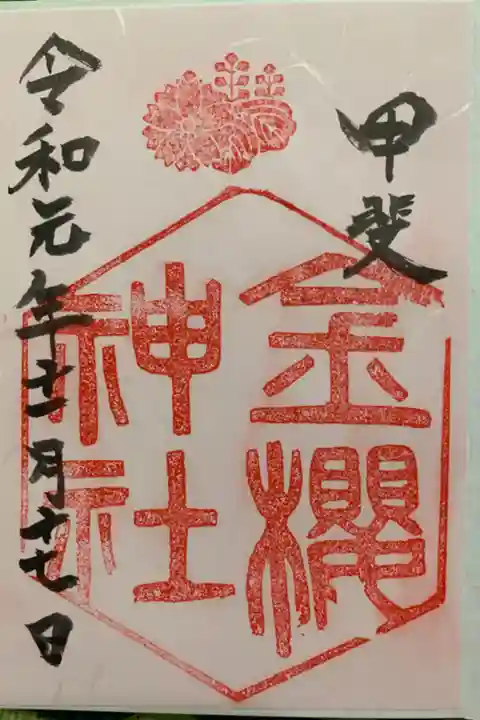 甲斐
金櫻
神社
令和元年十二月十七日